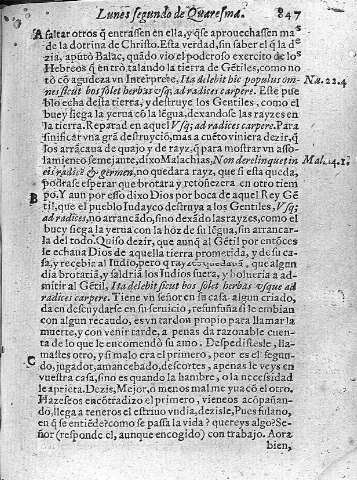 Lunes segundo de Quaresma. 847
A saltar otros q̃ entrassen en ella, y q̃ se aprouechassen mas
de la dotrina de Christo. Esta verdad, sin saber el q̃ la de-
zia, apũtò Balac, quãdo vio el poderoso exercito de los
Hebreos q̃ entrò talando la tierra de Gẽtiles, como no-
tò cõ agudeza vn Interprete, Ita delebit hic populus om- Nu. 22.4
nes sicut bos solet herbas vsq; ad radices carpere. Este pue
blo echa desta tierra, y destruye los Gentiles, como el
buey siega la yerua cõ la lẽgua, dexandose las rayzes en
la tierra. Reparad en aquel Vsq; ad radices carpere. Para
sinificar vna grã destruyciõ, mas a cuẽto viniera dezir, q̃
los arrãcaua de quajo y de rayz, q̃ para mostrar vn asso-
lamiento semejante, dixo Malachias, Non derelinquet in Mal. 4.1.
eis radicẽ & germen, no quedara rayz, que si esta queda,
podrase esperar que brotara y retoñezera en otro tiem
B po. Y aun por esso dixo Dios por boca de aquel Rey Gẽ
til, que el pueblo Iudayco destruya a los Gentiles, Vsq;
ad radices, no arrancãdo, sino dexãdo las rayzes, como el
buey siega la yerua con la hoz de su lẽgua, sin arrancar-
la del todo. Quiso dezir, que aunq̃ al Gẽtil por entõces
le echaua Dios de aquella tierra prometida, y de su ca-
sa, y recebia al Iudio, pero q̃ que algun
dia brotaria, y saldria los Iudios fuera, y bolueria a ad-
mitir al Gẽtil, Ita delebit sicut bos solet herbas vsque ad
radices carpere. Tiene vn señor en su casa algun criado,
da en descuydarse en su seruicio, refunfuña si le embian
con algun recaudo, es vn tardon propio para llamar la
muerte, y con venir tarde, a penas da razonable cuen-
ta de lo que le encomendò su amo. Despedistesle, lla-
mastes otro, y si malo era el primero, peor es el segun-
C do, jugador, amancebado, descortes, apenas le veys en
vuestra casa, sino es quando la hambre, o la necessidad
le aprieta. Dezis, Mejor, o menos mal me yua cõ el otro.
Hazeseos encõtradizo el primero, vieneos acõpañan-
do, llega a teneros el estriuo vn dia, dezisle, Pues fulano,
en q̃ se entiẽde? como se passa la vida? quereys algo? Se-
ñor (responde el, aunque encogido) con trabajo. Aora
bien,